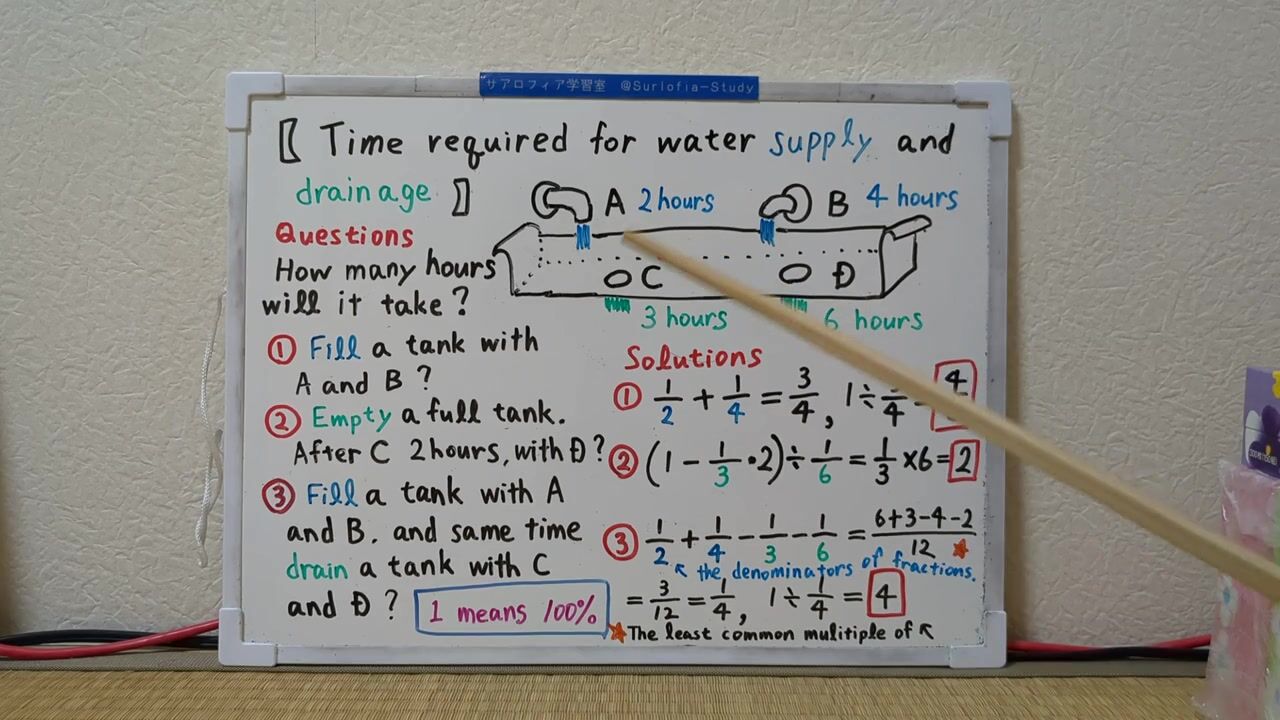 サアロフィア学習室 @Surlofia-Study
【 Time required for water supply and
drainage 】
A 2 hours
B 4 hours
C
D
3 hours
6 hours
Questions
How many hours
will it take?
① Fill a tank with
A and B?
② Empty a full tank.
After C 2 hours, with D?
③ Fill a tank with A
and B, and same time
drain a tank with C
and D?
1 means 100%
Solutions
① 1/2 + 1/4 = 3/4, 1 ÷ /4 4
② (1 - 1/3 • 2) ÷ 1/6 = 1/3 × 6 = 2
③ 1/2 + 1/4 - 1/3 - 1/6 = 6+3-4-2/12 ★
↖ the denominators of fractions.
= 3/12 = 1/4, 1 ÷ 1/4 = 4
★ The least common mulitiple of ↖